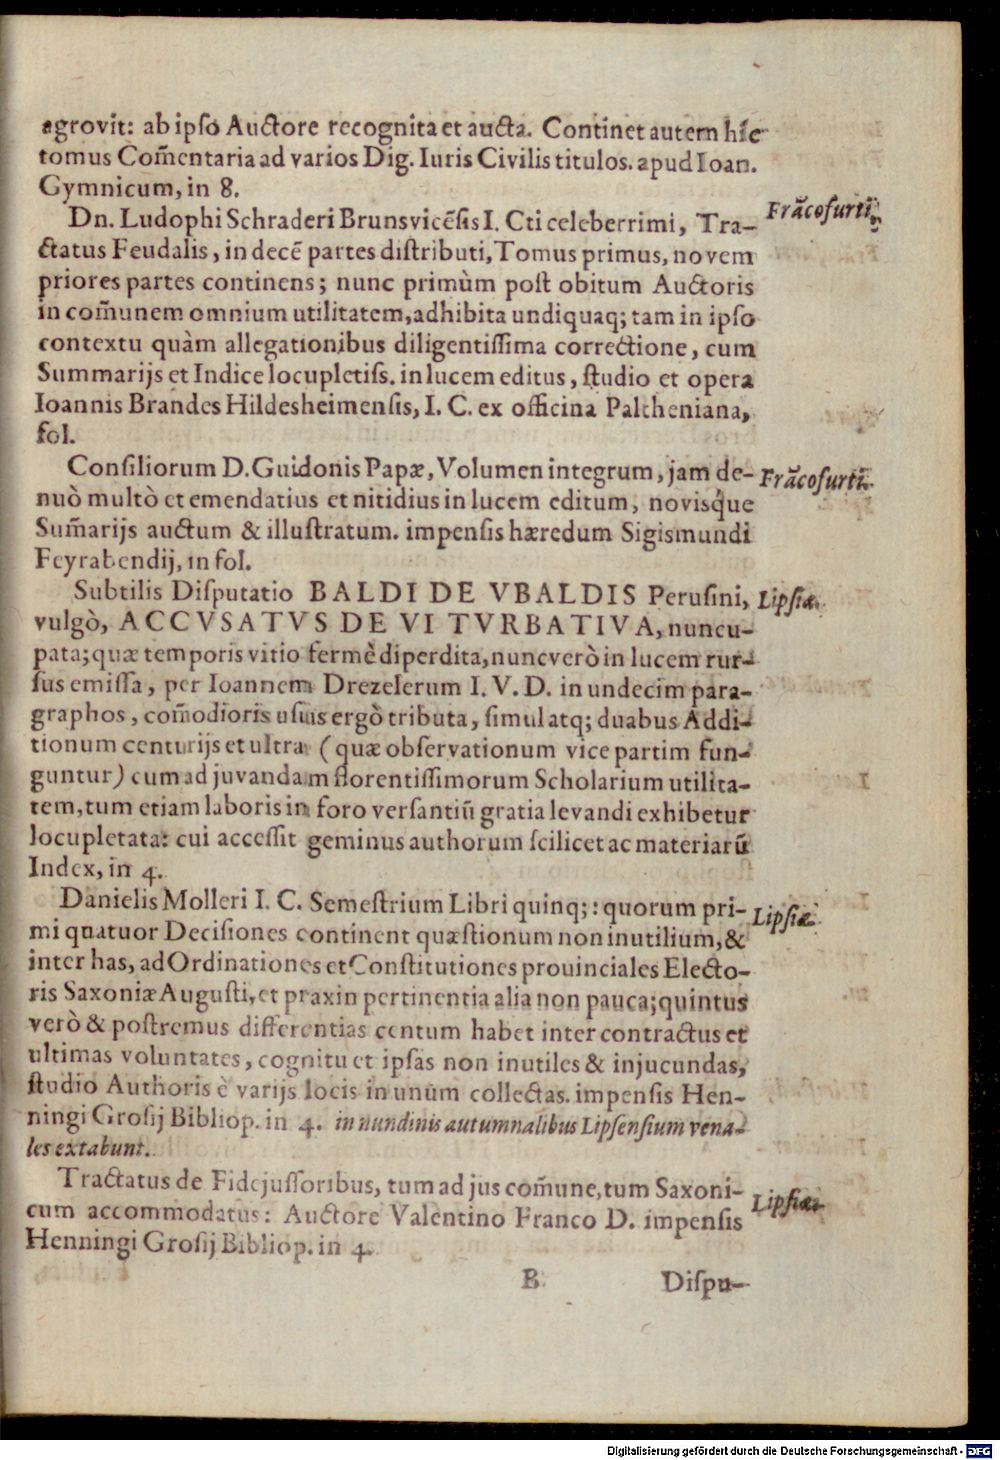 egrovit: ab ipſo Auctore recognita et aucta. Continet autem hîc
tomus Com̃entaria ad varios Dig. Iuris Civilis titulos. apud Ioan.
Gymnicum, in 8.
Dn. Ludophi Schraderi Brunsvicēſis I. Cti celeberrimi, Tra-
Frãcofurti.
ctatus Feudalis, in decē partes diſtributi, Tomus primus, novem
priores partes continens; nunc primùm poſt obitum Auctoris
in com̃unem omnium utilitatem, adhibita undiquaq; tam in ipſo
contextu quàm allegationibus diligentiſſima correctione, cum
Summarijs et Indice locupletiſs. in lucem editus, ſtudio et opera
Ioannis Brandes Hildesheimenſis, I. C. ex officina Paltheniana,
fol.
Conſiliorum D. Guidonis Papæ, Volumen integrum, jam de-
Frãcofurti.
nuò multò et emendatius et nitidius in lucem editum, novisq̀ue
Sum̃arijs auctum & illuſtratum. impenſis hæredum Sigismundi
Feyrabendij, in fol.
Subtilis Diſputatio BALDI DE VBALDIS Peruſini,
Lipſiæ.
vulgò, ACCVSATVS DE VI TVRBATIVA, nuncu-
pata; quæ temporis vitio fermè diperdita, nunc verò in lucem rur-
ſus emiſſa, per Ioannem Drezelerum I. V. D. in undecim para-
graphos, com̃odioris uſus ergò tributa, ſimul atq; duabus Addi-
tionum centurijs et ultra (quæ obſervationum vice partim fun-
guntur) cum ad juvandam florentiſſimorum Scholarium utilita-
tem, tum etiam laboris in foro verſantiũ gratia levandi exhibetur
locupletata: cui acceſſit geminus authorum ſcilicet ac materiarũ
Index, in 4.
Danielis Molleri I. C. Semeſtrium Libri quinq;: quorum pri-
Lipſiæ.
mi quatuor Deciſiones continent quæſtionum non inutilium, &
inter has, ad Ordinationes et Conſtitutiones prouinciales Electo-
ris Saxoniæ Auguſti, et praxin pertinentia alia non pauca; quintus
verò & poſtremus differentias centum habet inter contractus et
ultimas voluntates, cognitu et ipſas non inutiles & injucundas,
ſtudio Authoris è varijs locis in unùm collectas. impenſis Hen-
ningi Groſij Bibliop. in 4. in nundinis autumnalibus Lipſenſium vena-
les extabunt.
Tractatus de Fidejuſſoribus, tum ad jus com̃une, tum Saxoni-
Lipſiæ.
cum accommodatus: Auctore Valentino Franco D. impenſis
Henningi Groſij Bibliop. in 4.
B Diſpu-
Digitalisierung gefördert durch die Deutsche Forschungsgemeinschaft - DFG